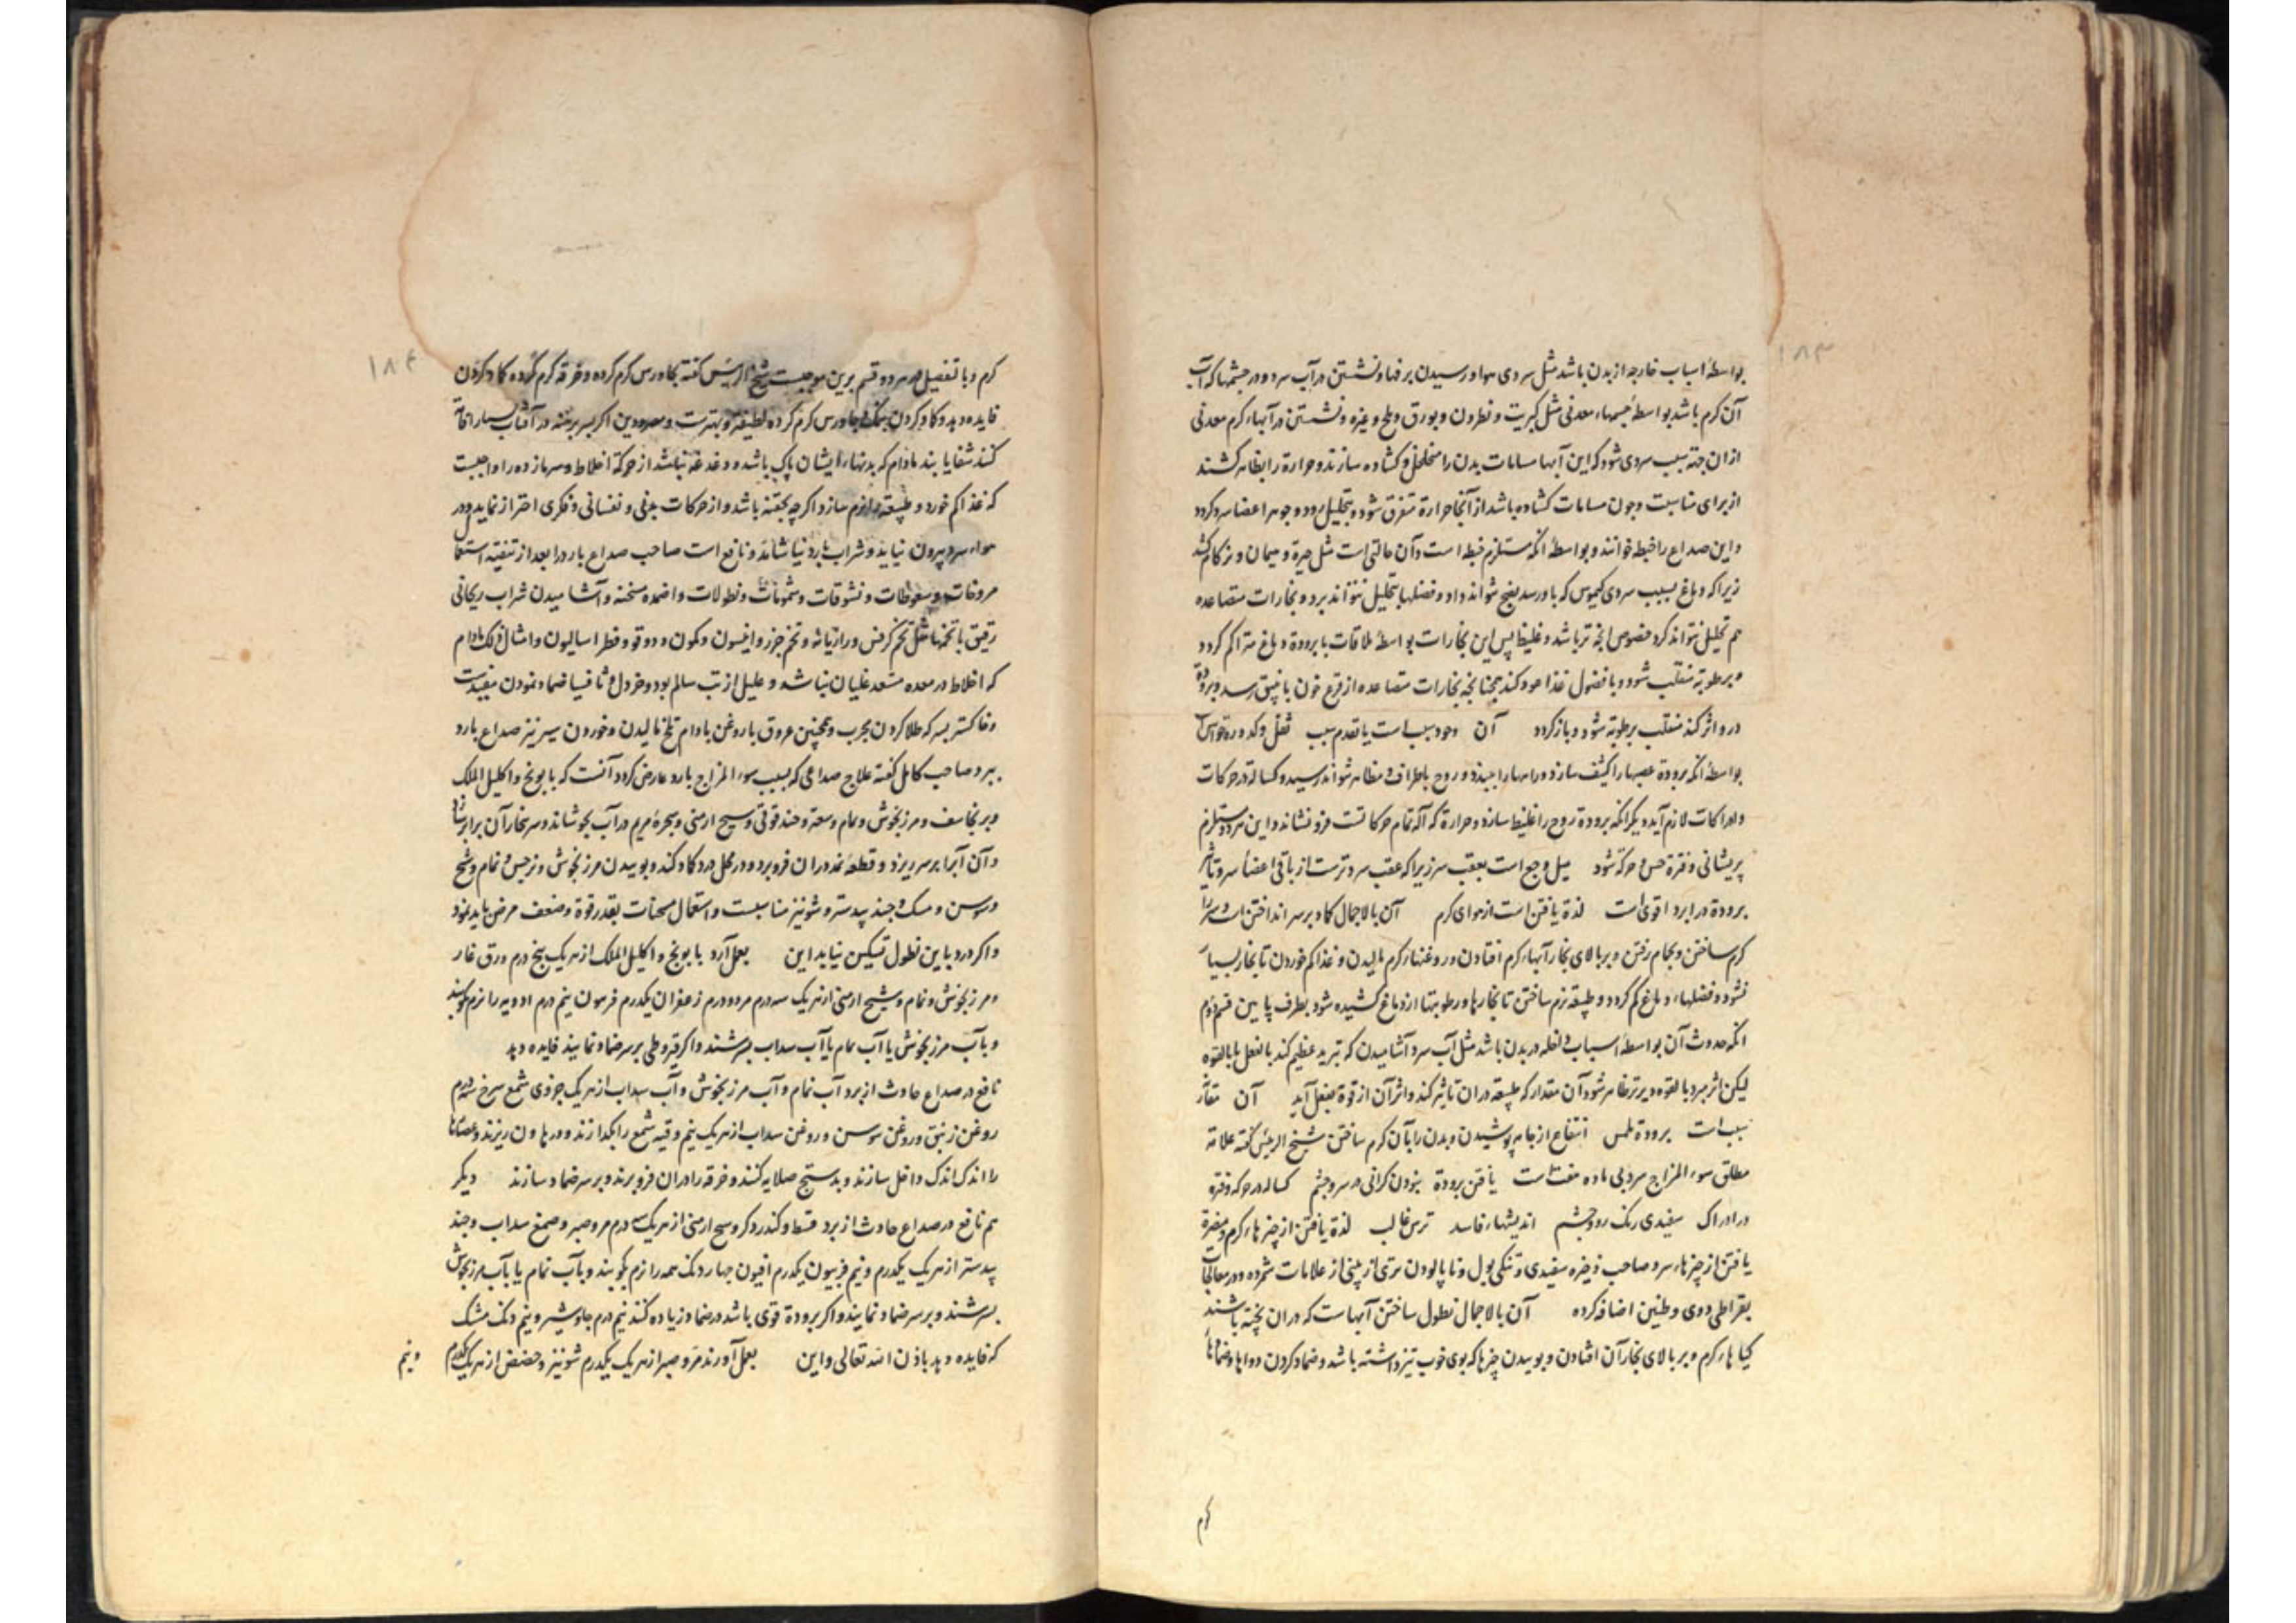 ۱۸۳
بواسطهٔ اسباب خارجه از بدن باشد مثل سردی هوا و رسیدن برفها و نشستن در آب سرد و در چشمها که آب
آن کرم باشد بواسطهٔ جسمهاء معدنی مثل کبریت و نطرون و بورق و ملح و غیره و نشستن در آبهاء کرم معدنی
ازان جهة سبب سردی شود که این آبها مسامات بدن را متخلخل و کشاده سازند و حرارة را بظاهر کشند
از برای مناسبت و چون مسامات کشاده باشد از آنجا حرارة متفرق شود و بتحلیل رود و جوهر اعضا سرد کردد
و این صداع را خبطه خوانند و بواسطهٔ آنکه مستلزم خبطه است و آن حالتی است مثل حیرة و هیمان و زکام کشد
زیرا که دماغ بسبب سردی کیموس که باو رسد نضج نتواند داد و فضلها بتحلیل نتواند برد و بخارات متصاعده
هم تحلیل نتواند کرد خصوص انچه تر باشد و غلیظ پس این بخارات بواسطهٔ ملاقات با برودة دماغ متراکم کردد
و برطوبة منقلب شود و با فضول غذا عود کند همچنانچه بخارات متصاعده از قرع چون بانبیق رسد و برودة
درو اثر کند منقلب برطوبة شود و باز کردد آن وجود سبب است یا تقدم سبب ثقل و کدورة حواس
بواسطهٔ آنکه برودة عصبها را کثیف سازد و راهها را ببندد و روح باطراف و مظاهر نتواند رسید و کسالة در حرکات
و ادراکات لازم آید دیکر آنکه برودة روح را غلیظ سازد و حرارة که آلة تمام حرکاتست فرو نشاند و این هر دو مستلزم
پریشانی و فترة حس و حرکة شود میل وجع است بعقب سر زیرا که عقب سر سردترست از باقی اعضاء سر و تأثیر
برودة در ابرد اقوی است لذة یافتن است از هوای کرم آن بالاجمال کماد بر سر انداختن است و سر را
کرم ساختن و بحمام رفتن و بر بالای بخار آبهاء کرم افتادن و روغنهاء کرم مالیدن و غذا کم خوردن تا بخار بسیار
نشود و فضلهاء دماغ کم کردد و طبیعة نرم ساختن تا بخارها و رطوبتها از دماغ کشیده شود بطرف پایین قسم دوم
آنکه حدوث آن بواسطهٔ اسباب داخله در بدن باشد مثل آب سرد آشامیدن که تبرید عظیم کند بالفعل یا بالقوه
لیکن اثر مبرد بالقوه دیرتر ظاهر شود آن مقدار که طبیعة دران تاثیر کند و اثر آن از قوة بفعل آید آن تقدم
سبب است برودة ملمس انتفاع از جامه پوشیدن و بدن را بآن کرم ساختن شیخ الرئیس کفته علامة
مطلق سوء المزاج سرد بی ماده هفت است یافتن برودة نبودن کرانی در سر و چشم کسالة در حرکه و فترة
در ادراک سفیدی رنک رو و چشم اندیشهاء فاسد ترس غالب لذة یافتن از چیزهاء کرم و مضرة
یافتن از چیزهاء سرد صاحب ذخیره سفیدی و تنکی بول و ناپالودن تری از بینی از علامات شمرده و در معالجات
بقراطی دوی و طنین اضافه کرده آن بالاجمال نطول ساختن آبهاست که دران پخته باشند
کیاهاء کرم و بر بالای بخار آن افتادن و بوییدن چیزها که بوی خوب تیز داشته باشد و ضماد کردن دواها و ضمادهاء
کرم
۱۸۴
کرم و با تفصیل هر دو قسم برین موجبست شیخ الرئیس کفته بجاورس کرم کرده و خرقه کرم کرده کماد کردن
فایده دهد و کماد کردن بنمک و جاورس کرم کرده لطیف‌تر و بهترست و مصرودین اکر بسر برهنه در آفتاب بسیار اقامة
کنند شفا یابند مادام که بدنهاء ایشان پاک باشد و دغدغه نباشد از حرکة اخلاط و سرمازده را واجبست
که غذا کم خورد و طبیعة را نرم سازد اکرچه بحقنه باشد و از حرکات بدنی و نفسانی و فکری احتراز نماید و در
هواء سرد بیرون نیاید و شراب بارد نیاشامد و نافع است صاحب صداع بارد را بعد از تنقیه استعمال
مروخات و سعوطات و نشوقات و شمومات و نطولات و اضمده مسخنه و آشامیدن شراب ریحانی
رقیق با تخمها مثل تخم کرفس و رازیانه و تخم جزر و انیسون و کمون و دوقو و فطراسالیون و امثال ذلک مادام
که اخلاط در معده مستعد غلیان نباشد و علیل از تب سالم بود و خردل و ثافسیا ضماد نمودن مفیدست
و خاکستر بسرکه طلا کردن مجرب و همچنین عروق با روغن بادام تلخ مالیدن و خوردن سیر نیز صداع بارد
ببرد صاحب کامل کفته علاج صداعی که بسبب سوء المزاج بارد عارض کردد آنست که بابونج و اکلیل الملک
و برنجاسف و مرزنجوش و نمام و سعتر و حندقوقی و شیح ارمنی و بخور مریم در آب بجوشاند و سر بخار آن برابر دارد
و آن آب را بر سر ریزد و قطعهٔ نمد دران فرو برد و در محل درد کماد کند و بوییدن مرزنجوش و نرجس و نمام و شیح
و سوسن و مسک و جند بیدستر و شونیز مناسبست و استعمال مسخنات بقدر قوة و ضعف مرض باید نمود
و اکر درد باین نطول تسکین نیابد این بعمل آرد بابونج و اکلیل الملک از هر یک پنج درم ورق غار
و مرزنجوش و نمام و شیح ارمنی از هر یک سه درم مر دو درم زعفران یکدرم فرفیون نیم درم ادویه را نرم کوبند
و بآب مرزنجوش یا آب نمام یا آب سداب بسرشند و اکر قیروطی بر سر ضماد نمایند فایده دهد
نافع در صداع حادث از برد آب نمام و آب مرزنجوش و آب سداب از هر یک جزوی شمع سرخ سه درم
روغن زنبق و روغن سوسن و روغن سداب از هر یک نیم وقیه شمع را بکدازند و در هاون ریزند و عصارها
را اندک اندک داخل سازند و بدستج صلایه کنند و خرقه را دران فرو برند و بر سر ضماد سازند دیکر
هم نافع در صداع حادث از برد قسط و کندر و کر و شیح ارمنی از هر یک سه درم مر و صبر و صمغ سداب و جند
بیدستر از هر یک یکدرم و نیم فربیون یکدرم افیون چهار دنک همه را نرم بکوبند و بآب نمام یا بآب مرزنجوش
بسرشند و بر سر ضماد نمایند و اکر برودة قوی باشد در ضماد زیاده کنند نیم درم جاوشیر و نیم دنک مشک
که فایده دهد باذن الله تعالی و این بعمل آورند مر و صبر از هر یک یکدرم شونیز و حضض از هر یک یکدرم و نیم